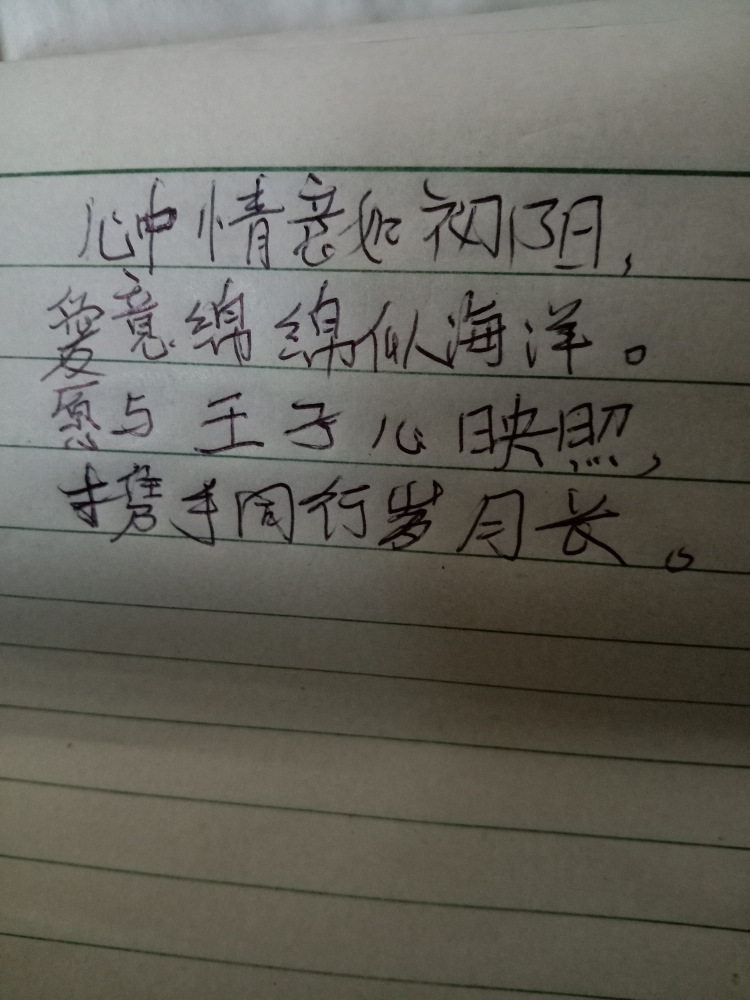 心中情意如初阳，
爱意绵绵似海洋。
愿与王子心映照，
携手同行岁月长。